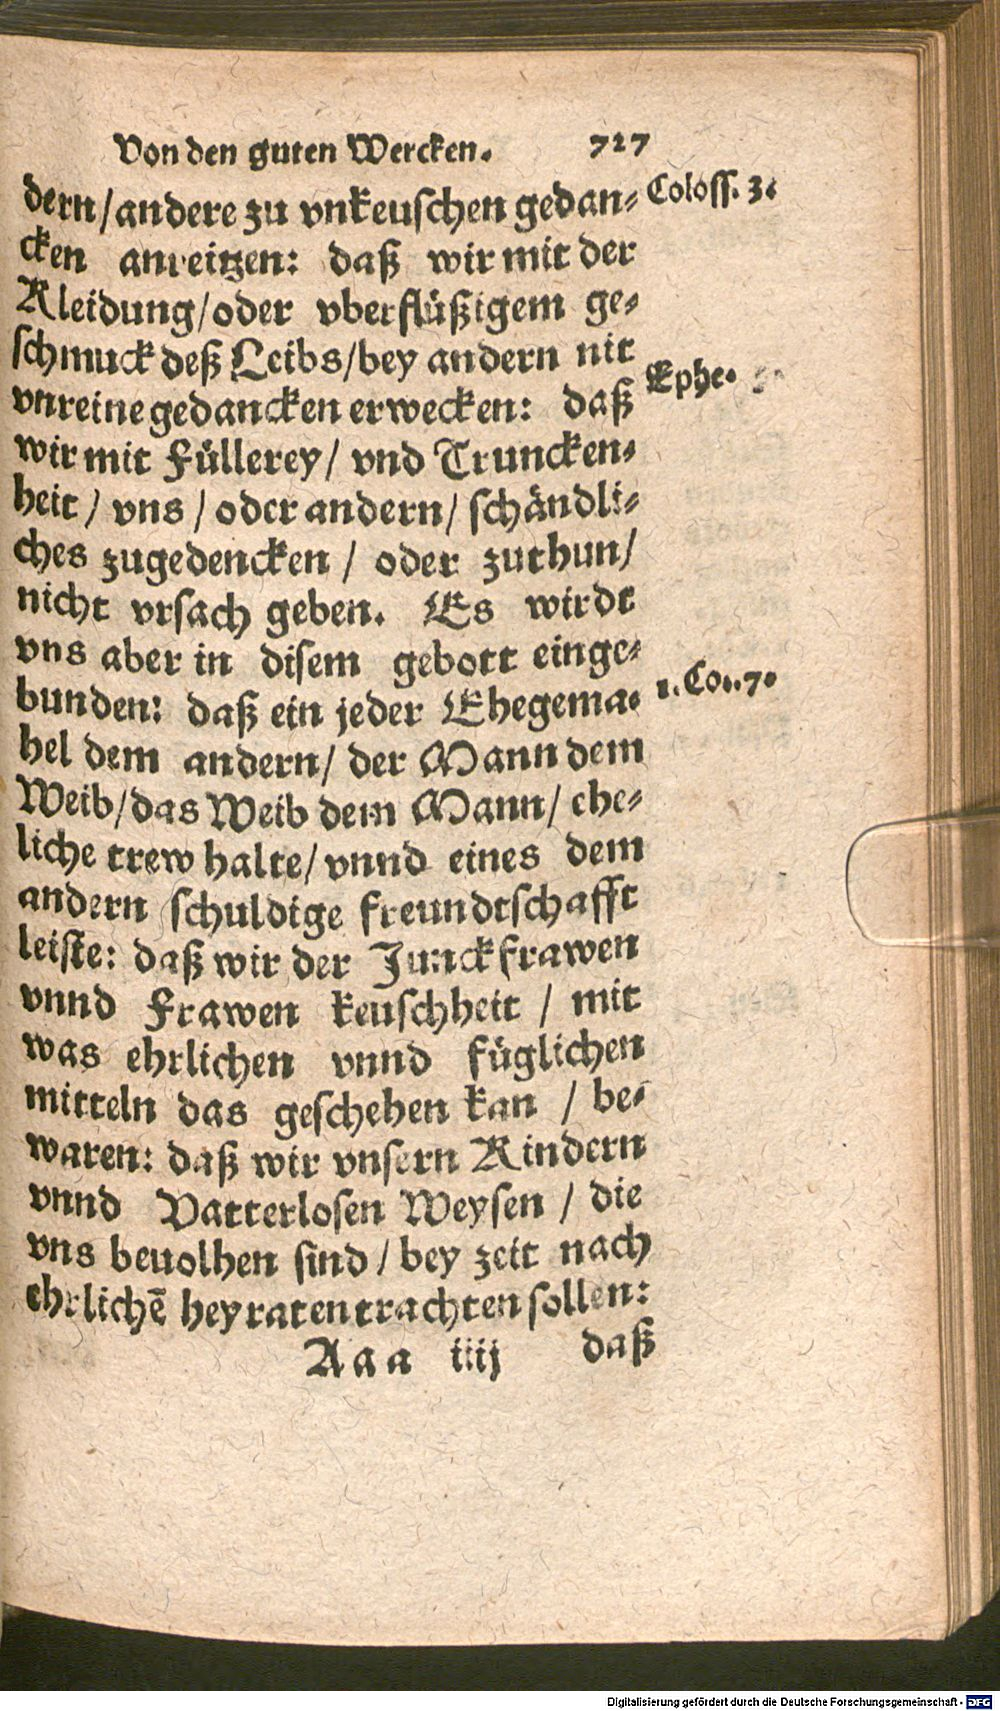 Von den guten Wercken. 727
dern/andere zu vnkeuschen gedan⸗ Coloss. 3.
cken anreitzen: daß wir mit der
Kleidung/oder vberflüßigem ge⸗
schmuck deß Leibs/bey andern nit
vnreine gedancken erwecken: daß Ephe.
wir mit Füllerey/ vnd Truncken⸗
heit/ vns/ oder andern/ schändli⸗
ches zugedencken/ oder zuthun/
nicht vrsach geben. Es wirdt
vns aber in disem gebott einge⸗
bunden: daß ein jeder Ehegema⸗ 1. Cor. 7.
hel dem andern/ der Mann dem
Weib/das Weib dem Mann/ ehe⸗
liche trew halte/ vnnd eines dem
andern schuldige freundtschafft
leiste: daß wir der Junckfrawen
vnnd Frawen keuschheit/ mit
was ehrlichen vnnd füglichen
mitteln das geschehen kan/ be⸗
waren: daß wir vnsern Kindern
vnnd Vatterlosen Weysen/ die
vns beuolhen sind/ bey zeit nach
ehrlichē heyraten trachten sollen:
Aaa iiij daß
Digitalisierung gefördert durch die Deutsche Forschungsgemeinschaft - DFG